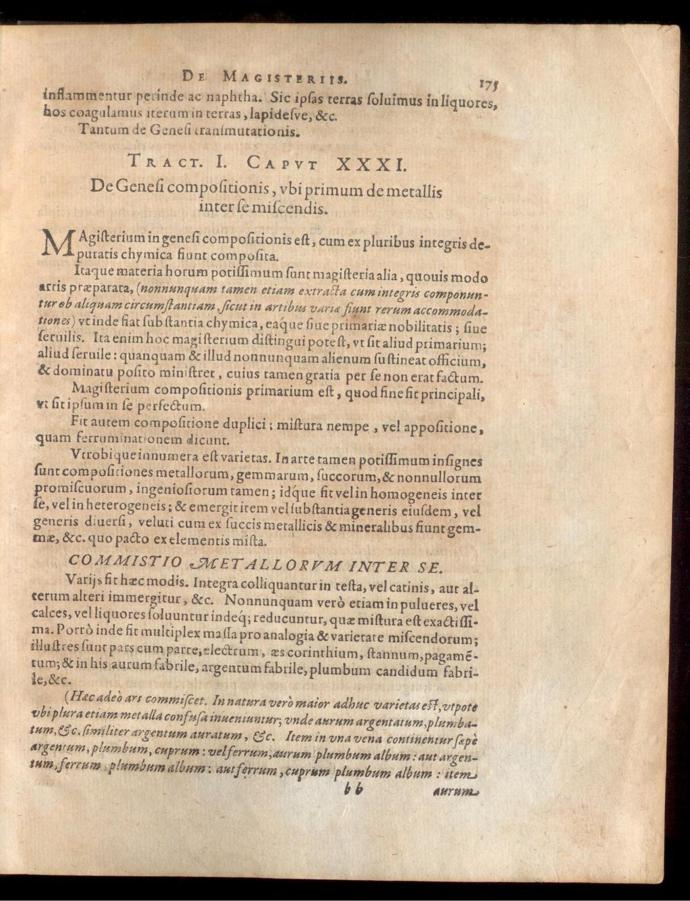 DE MAGISTERIIS. 175
inflammentur perinde ac naphtha. Sic ipsas terras soluimus in liquores,
hos coagulamus iterum in terras, lapidesve, &c.
Tantum de Genesi transmutationis.
TRACT. I. CAPVT XXXI.
De Genesi compositionis, vbi primum de metallis
inter se miscendis.
MAgisterium in genesi compositionis est, cum ex pluribus integris de-
puratis chymica fiunt composita.
Itaque materia horum potissimum sunt magisteria alia, quouis modo
artis præparata, (nonnunquam tamen etiam extracta cum integris componun-
tur ob aliquam circumstantiam, sicut in artibus variæ fiunt rerum accommoda-
tiones) vt inde fiat substantia chymica, eáque siue primariæ nobilitatis; siue
seruilis. Ita enim hoc magisterium distingui potest, vt sit aliud primarium;
aliud seruile: quanquam & illud nonnunquam alienum sustineat officium,
& dominatu posito ministret, cuius tamen gratia per se non erat factum.
Magisterium compositionis primarium est, quod fine sit principali,
vt sit ipsum in se perfectum.
Fit autem compositione duplici; mistura nempe, vel appositione,
quam ferruminationem dicunt.
Vtrobique innumera est varietas. In arte tamen potissimum insignes
sunt compositiones metallorum, gemmarum, succorum, & nonnullorum
promiscuorum, ingeniosiorum tamen; idque fit vel in homogeneis inter
se, vel in heterogeneis; & emergit item vel substantia generis eiusdem, vel
generis diuersi, veluti cum ex succis metallicis & mineralibus fiunt gem-
mæ, &c. quo pacto ex elementis mista.
COMMISTIO METALLORVM INTER SE.
Varijs fit hæc modis. Integra colliquantur in testa, vel catinis, aut al-
terum alteri immergitur, &c. Nonnunquam verò etiam in pulueres, vel
calces, vel liquores soluuntur indeq; reducuntur, quæ mistura est exactissi-
ma. Porrò inde fit multiplex massa pro analogia & varietate miscendorum;
illustres sunt pars cum parte, electrum, æs corinthium, stannum, pagamẽ-
tum; & in his aurum fabrile, argentum fabrile, plumbum candidum fabri-
le, &c.
(Hæc adeò ars commiscet. In natura verò maior adhuc varietas est, vtpote
vbi plura etiam metalla confusa inueniuntur; vnde aurum argentatum, plumba-
tum, &c. similiter argentum auratum, &c. Item in vna vena continentur sæpè
argentum, plumbum, cuprum: vel ferrum, aurum plumbum album: aut argen-
tum, ferrum, plumbum album: aut ferrum, cuprum plumbum album: item
bb aurum